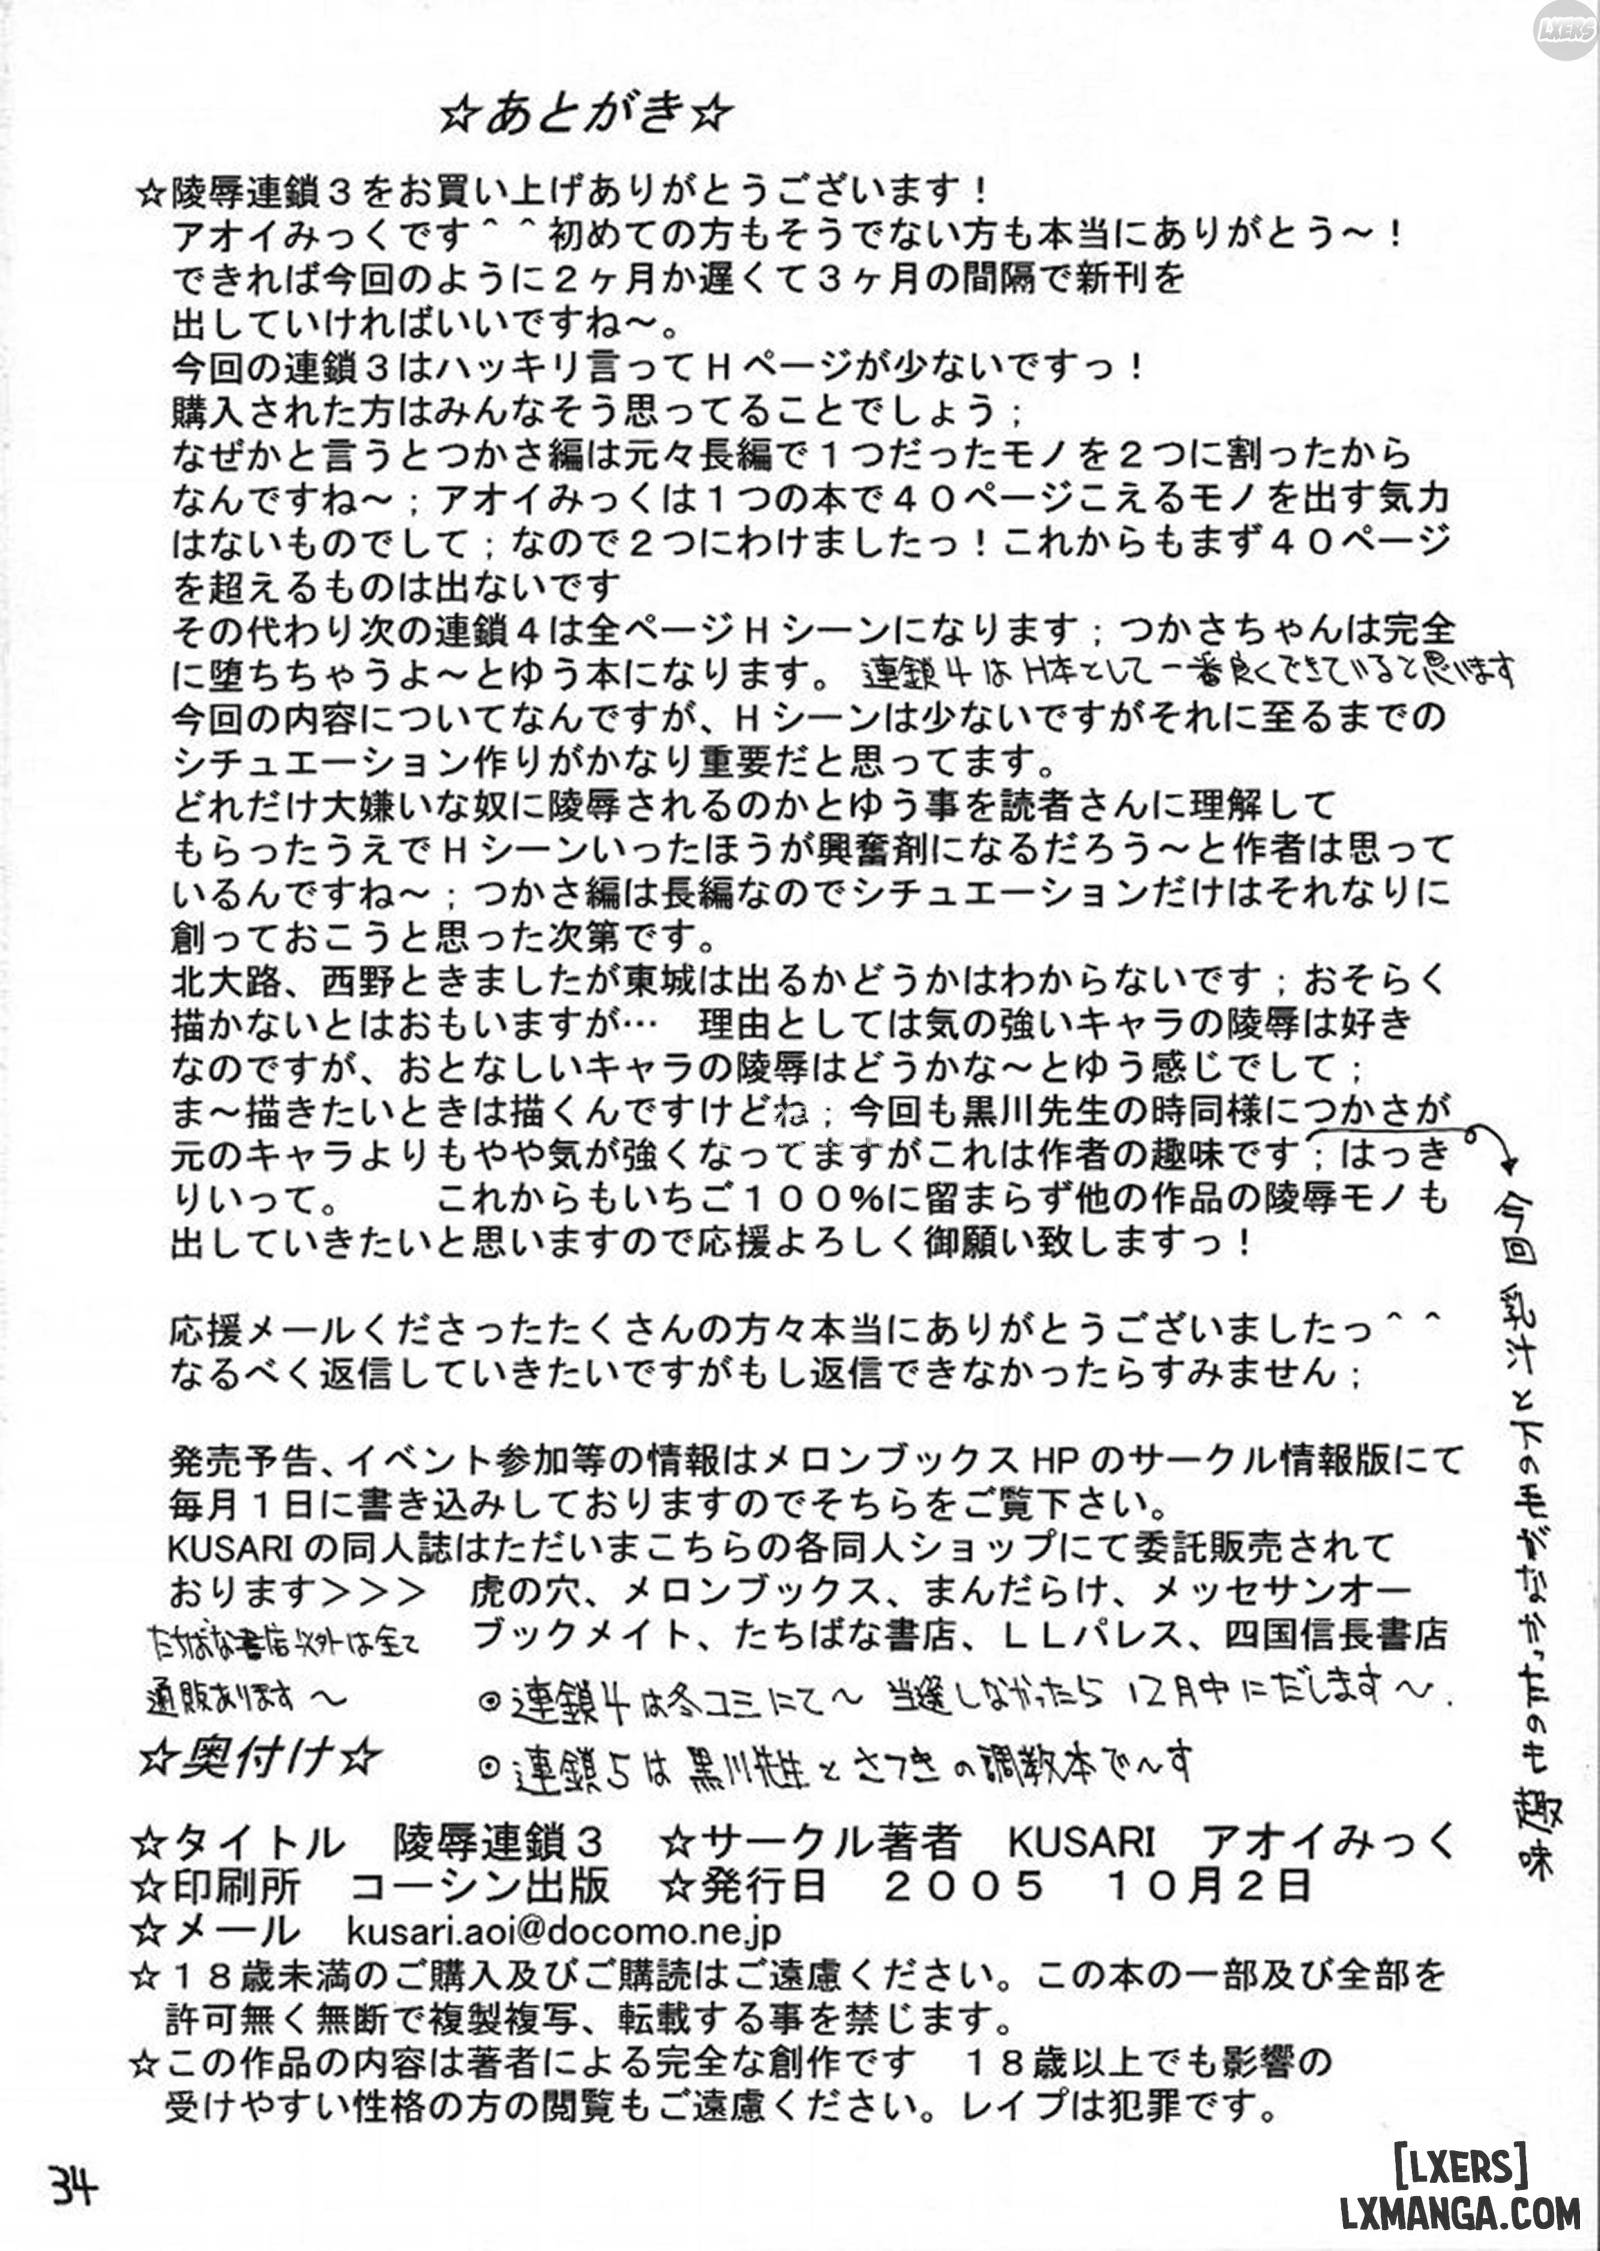 ☆あとがき☆
☆陵辱連鎖３をお買い上げありがとうございます！
アオイみっくです＾＾初めての方もそうでない方も本当にありがとう～！
できれば今回のように２ヶ月か遅くて３ヶ月の間隔で新刊を
出していければいいですね～。
今回の連鎖３はハッキリ言ってＨページが少ないですっ！
購入された方はみんなそう思ってることでしょう；
なぜかと言うとつかさ編は元々長編で１つだったモノを２つに割ったから
なんですね～；アオイみっくは１つの本で４０ページこえるモノを出す気力
はないものでして；なので２つにわけましたっ！これからもまず４０ページ
を超えるものは出ないです
その代わり次の連鎖４は全ページＨシーンになります；つかさちゃんは完全
に堕ちちゃうよ～とゆう本になります。 連鎖4はH本として一番良くできていると思います
今回の内容についてなんですが、Ｈシーンは少ないですがそれに至るまでの
シチュエーション作りがかなり重要だと思ってます。
どれだけ大嫌いな奴に陵辱されるのかとゆう事を読者さんに理解して
もらったうえでＨシーンいったほうが興奮剤になるだろう～と作者は思って
いるんですね～；つかさ編は長編なのでシチュエーションだけはそれなりに
創っておこうと思った次第です。
北大路、西野ときましたが東城は出るかどうかはわからないです；おそらく
描かないとはおもいますが… 理由としては気の強いキャラの陵辱は好き
なのですが、おとなしいキャラの陵辱はどうかな～とゆう感じでして；
ま～描きたいときは描くんですけどね；今回も黒川先生の時同様につかさが
元のキャラよりもやや気が強くなってますがこれは作者の趣味です；はっき
りいって。 これからもいちご１００％に留まらず他の作品の陵辱モノも
出していきたいと思いますので応援よろしく御願い致しますっ！
今回乳汁と下の毛がなかったのも趣味
応援メールくださったたくさんの方々本当にありがとうございましたっ＾＾
なるべく返信していきたいですがもし返信できなかったらすみません；
発売予告、イベント参加等の情報はメロンブックスＨＰのサークル情報版にて
毎月１日に書き込みしておりますのでそちらをご覧下さい。
KUSARIの同人誌はただいまこちらの各同人ショップにて委託販売されて
おります＞＞＞ 虎の穴、メロンブックス、まんだらけ、メッセサンオー
ブックメイト、たちばな書店、ＬＬパレス、四国信長書店
たちばな書店以外は全て
通販あります～
◎連鎖4は冬コミにて～ 当選しなかったら12月中にだします～.
◎連鎖5は黒川先生とさつきの調教本で～す
☆奥付け☆
☆タイトル 陵辱連鎖３ ☆サークル著者 KUSARI アオイみっく
☆印刷所 コーシン出版 ☆発行日 ２００５ １０月２日
☆メール kusari.aoi@docomo.ne.jp
☆１８歳未満のご購入及びご購読はご遠慮ください。この本の一部及び全部を
許可無く無断で複製複写、転載する事を禁じます。
☆この作品の内容は著者による完全な創作です １８歳以上でも影響の
受けやすい性格の方の閲覧もご遠慮ください。レイプは犯罪です。
34
LXERS
[LXERS]
LXMANGA.COM